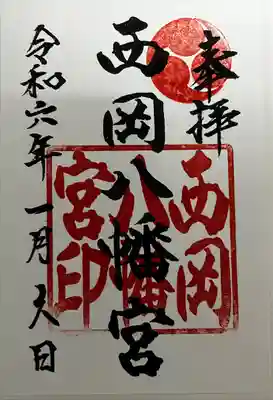 奉拝
西岡八幡宮
西岡
八幡
宮印
令和六年 一月 六日